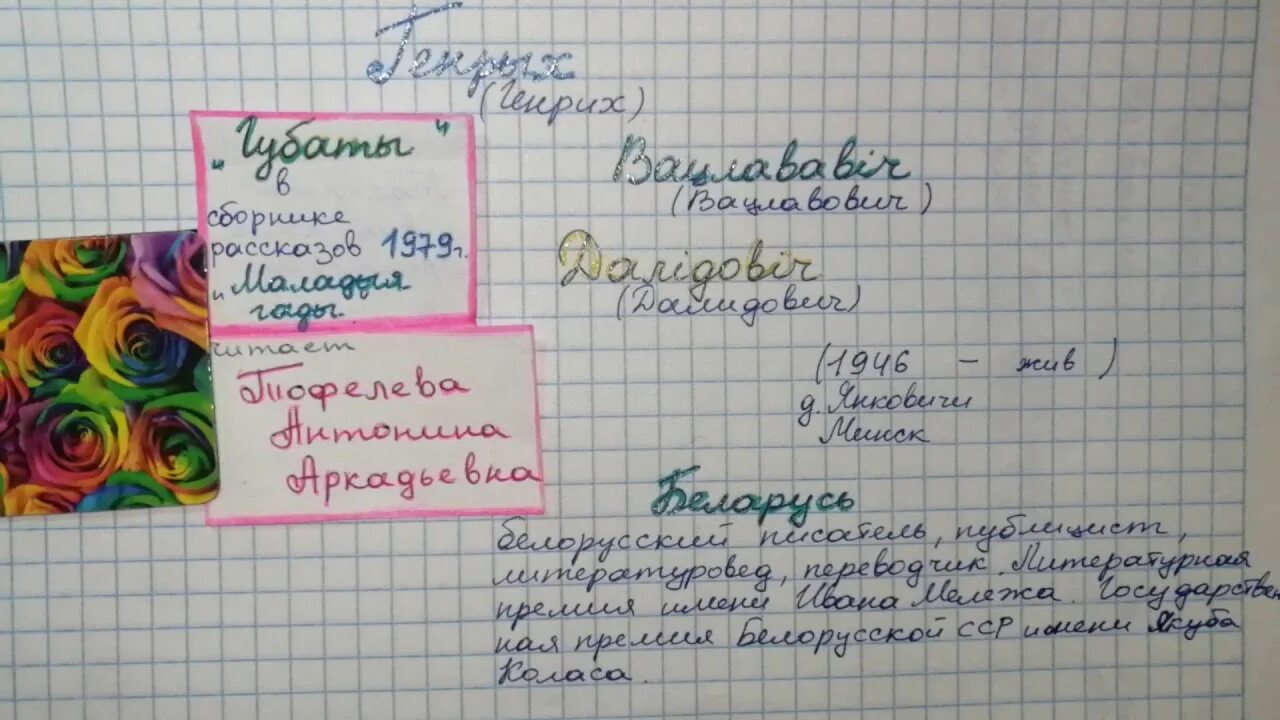 Генрых
(Генрих)
"Губаты"
в
сборнике
рассказов 1979г.
"Маладыя
гады
читает
Тюфелева
Антонина
Аркадьевна
Вацлававіч
(Вацлавович)
Далідовіч
(Далидович)
(1946 - жив)
д. Янковичи
Минск
Беларусь
белорусский писатель, публицист,
литературовед, переводчик. Литературная
премия имени Ивана Мележа. Государствен
ная премия Белорусской ССР имени Якуба
Коласа.